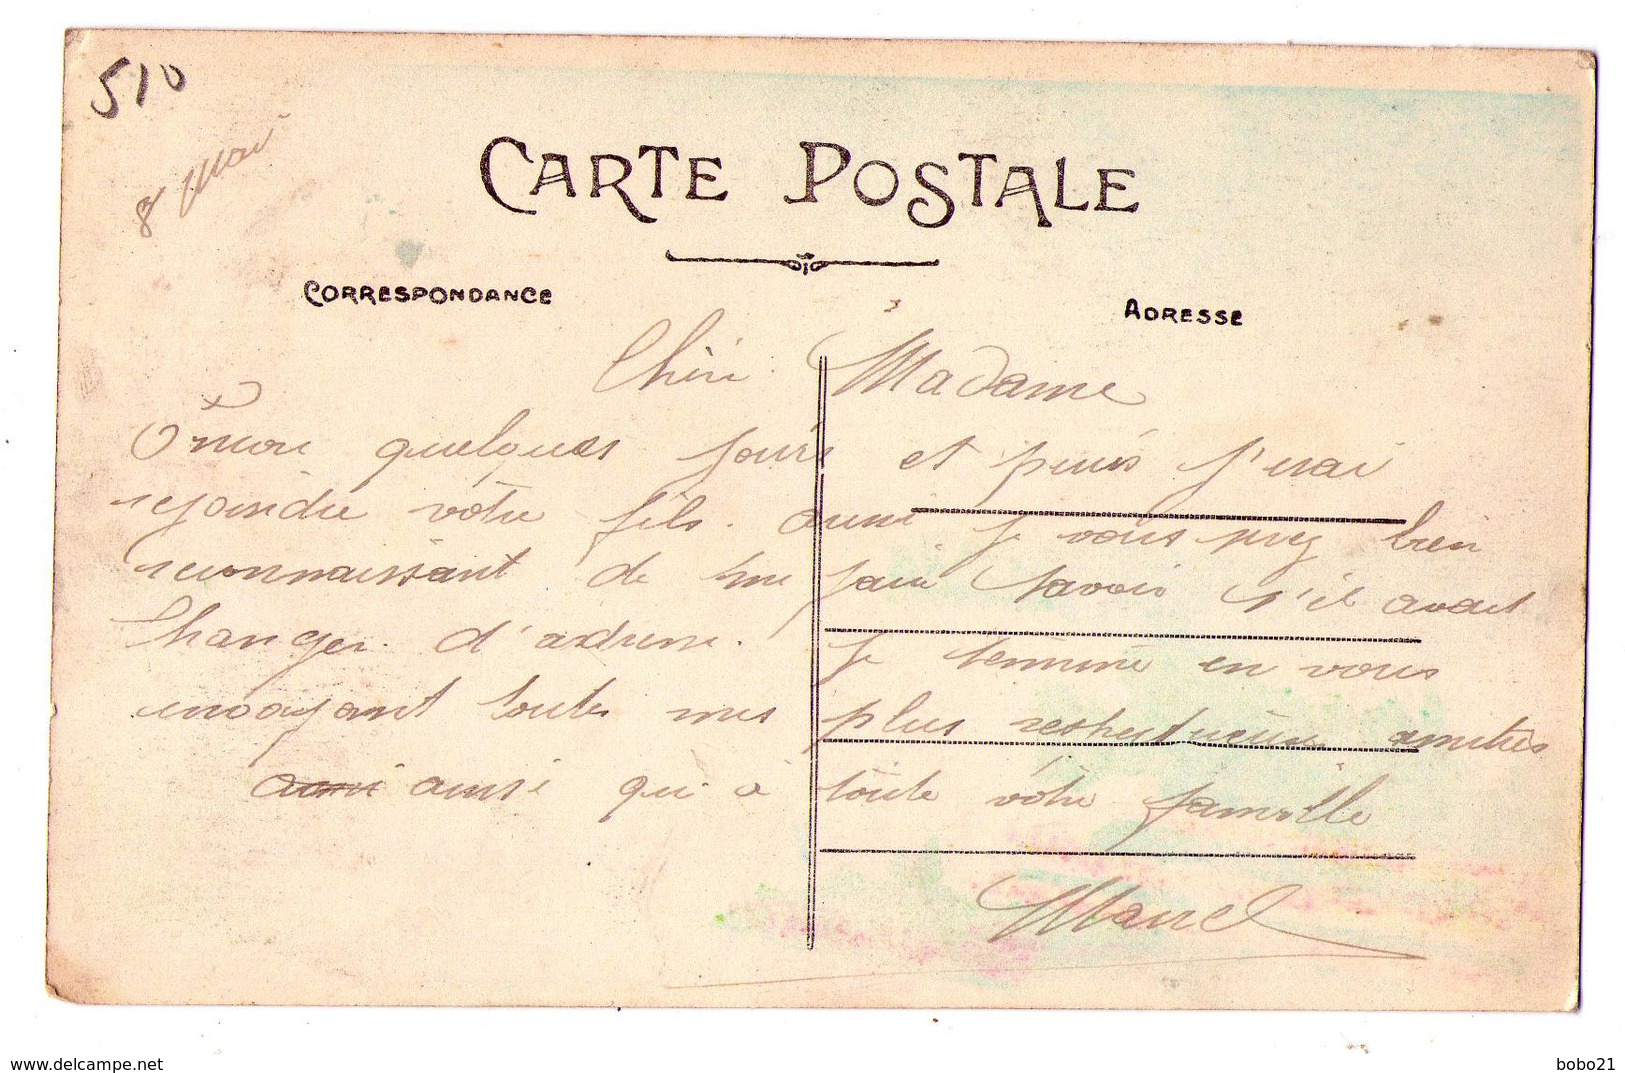 510
8 Mai
CARTE POSTALE
CORRESPONDANCE
ADRESSE
Chère Madame
quelques jours et puis j'irai
rejoindre vôtre fils. aussi je vous serez bien
reconnaissant de me faire savoir s'il avait
Changer d'adresse. Je termine en vous
envoyant toute mes plus respectueuses amitiés
ainsi qu'à toute vôtre famille
Marcel
My-delcampe.net
bobo21